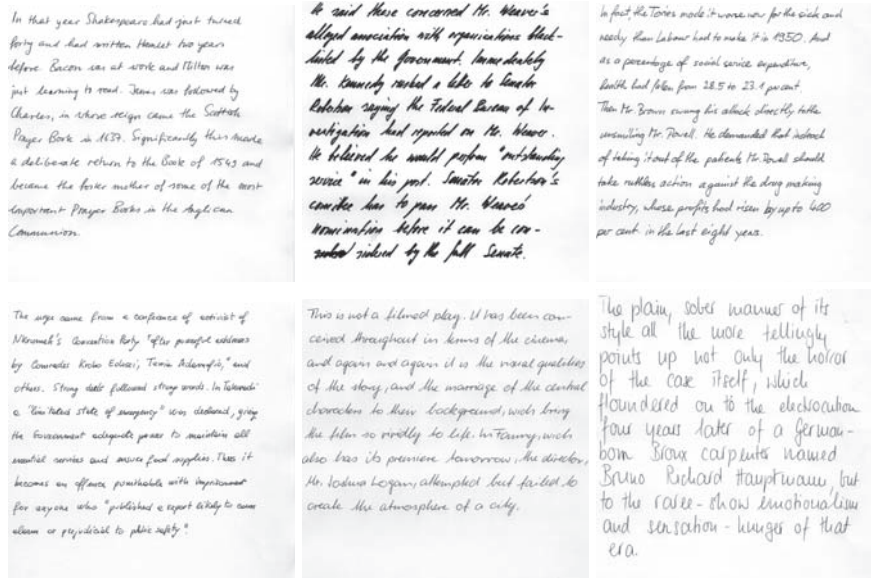 In that year Shakespeare had just turned
forty and had written Hamlet two years
before. Bacon was at work and Milton was
just learning to read. James was followed by
Charles, in whose reign came the Scottish
Prayer Book in 1637. Significantly this made
a deliberate return to the Book of 1549 and
became the foster mother of some of the most
important Prayer Books in the Anglican
Communion.
He said these concerned Mr. Weaver's
alleged association with organisations black-
listed by the Government. Immediately
Mr. Kennedy rushed a letter to Senator
Robertson saying the Federal Bureau of In-
vestigation had reported on Mr. Weaver.
He believed he would perform "outstanding
service" in his post. Senator Robertson's
comitee has to pass Mr. Weaver's
nomination before it can be con-
sidered by the full Senate.
In fact, the Tories made it worse now for the sick and
needy than Labour had to make it in 1950. And
as a percentage of social service expenditure,
health had fallen from 28.5 to 23.1 per cent.
Then Mr. Brown swung his attack directly to the
unsmiling Mr. Powell. He demanded that instead
of taking it out of the patients Mr. Powell should
take ruthless action against the drug making
industry, whose profits had risen by up to 400
per cent. in the last eight years.
The urge came from a conference of activist of
Nkrumah's Convention Party "after powerful addresses
by Comrades Krobo Edusei, Tawia Adamafio," and
others. Strong deeds followed strong words. In Takoradi
a "limited state of emergency" was declared, giving
the Government adequate power to maintain all
essential services and ensure food supplies. Thus it
becomes an offence punishable with imprisonment
for anyone who "published a report likely to cause
alarm or prejudicial to public safety".
This is not a filmed play. It has been con-
ceived throughout in terms of the cinema,
and again and again it is the visual qualities
of the story, and the marriage of the central
characters to their background, wich bring
the film so vividly to life. In Fanny, wich
also has its premiere tomorrow, the director,
Mr. Joshua Logan, attempted but failed to
create the atmosphere of a city.
The plain, sober manner of its
style all the more tellingly
points up not only the horror
of the case itself, which
floundered on to the electrocution
four years later of a German-
born Bronx carpenter named
Bruno Richard Hauptmann, but
to the raree-show emotionalism
and sensation-hunger of that
era.